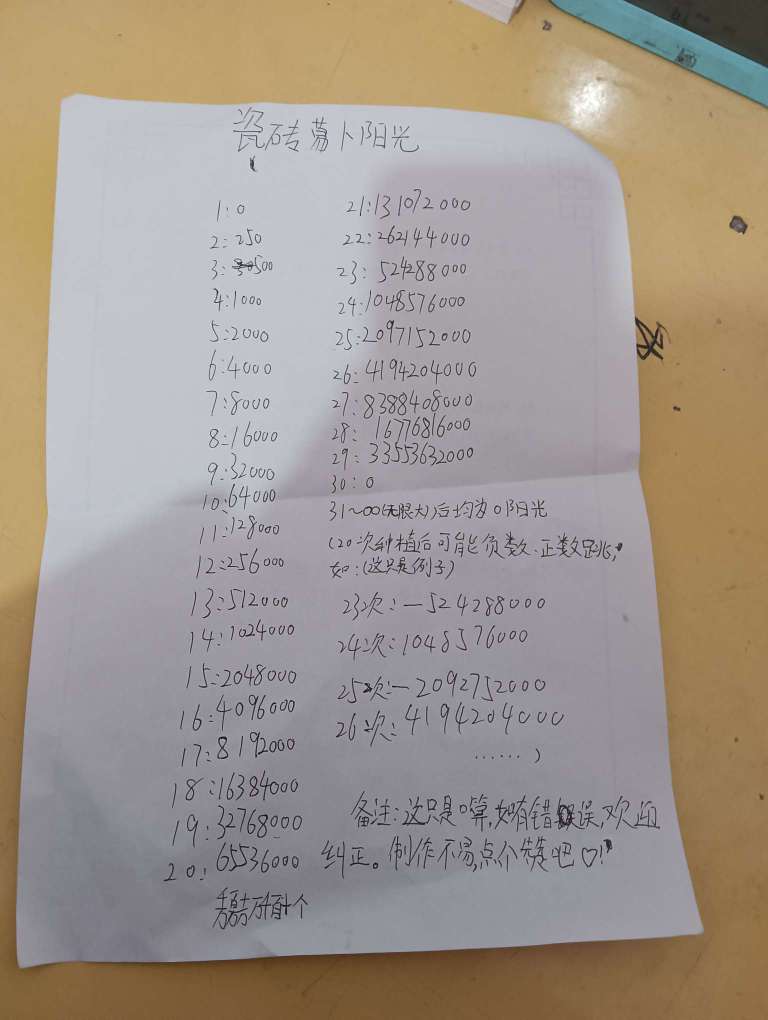 瓷砖萝卜阳光
1:0
2:250
3:500
4:1000
5:2000
6:4000
7:8000
8:16000
9:32000
10:64000
11:128000
12:256000
13:512000
14:1024000
15:2048000
16:4096000
17:8192000
18:16384000
19:32768000
20:65536000
21:131072000
22:262144000
23:524288000
24:1048576000
25:2097152000
26:4194204000
27:8388408000
28:16776816000
29:33553632000
30:0
31~∞(无限大)后均为0阳光
(20次种植后可能负数、正数跳,
如:(这只是例子)
23次:—524288000
24次:1048576000
25次:—2092752000
26次:4194204000
……)
备注:这只是口算,如有错误,欢迎
纠正。制作不易点个赞吧♡!